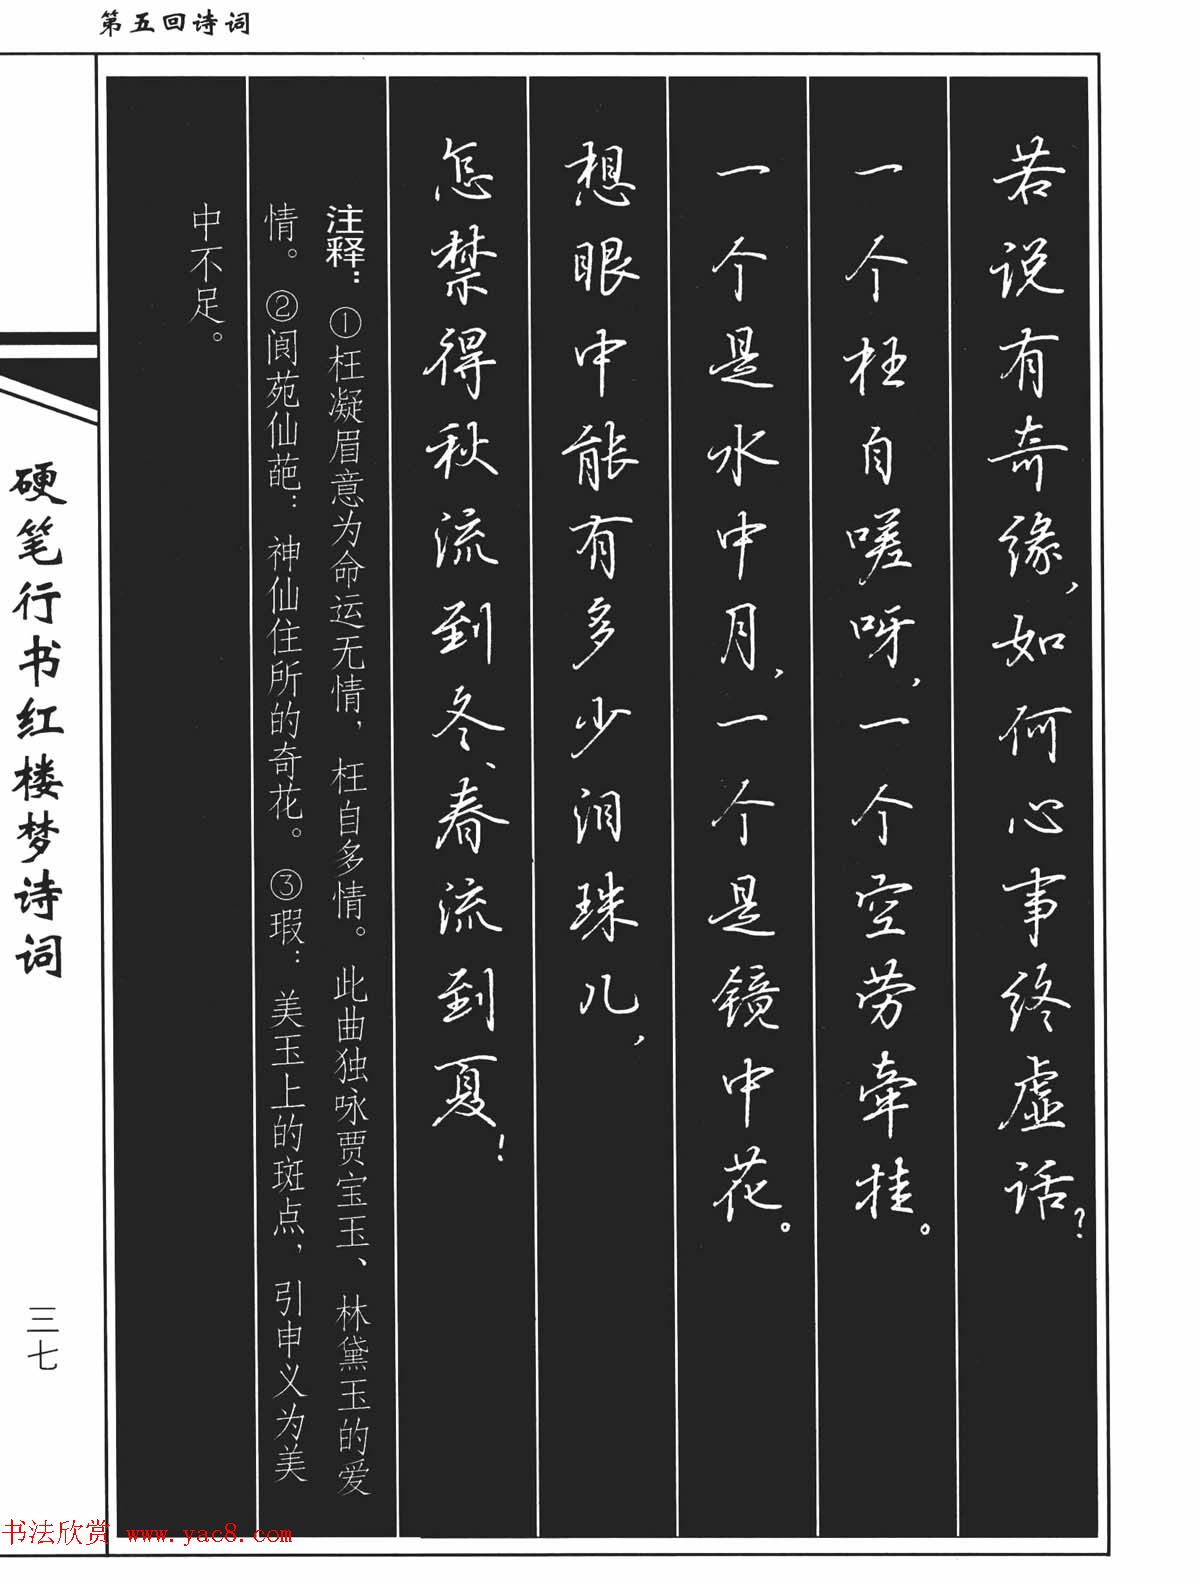 第五回诗词
若说有奇缘，如何心事终虚话？
一个枉自嗟呀，一个空劳牵挂。
一个是水中月，一个是镜中花。
想眼中能有多少泪珠儿，
怎禁得秋流到冬、春流到夏！
注释：①枉凝眉意为命运无情，枉自多情。此曲独咏贾宝玉、林黛玉的爱
情。②阆苑仙葩：神仙住所的奇花。③瑕：美玉上的斑点，引申义为美
中不足。
硬笔行书红楼梦诗词
三七
书法欣赏 www.yac8.com